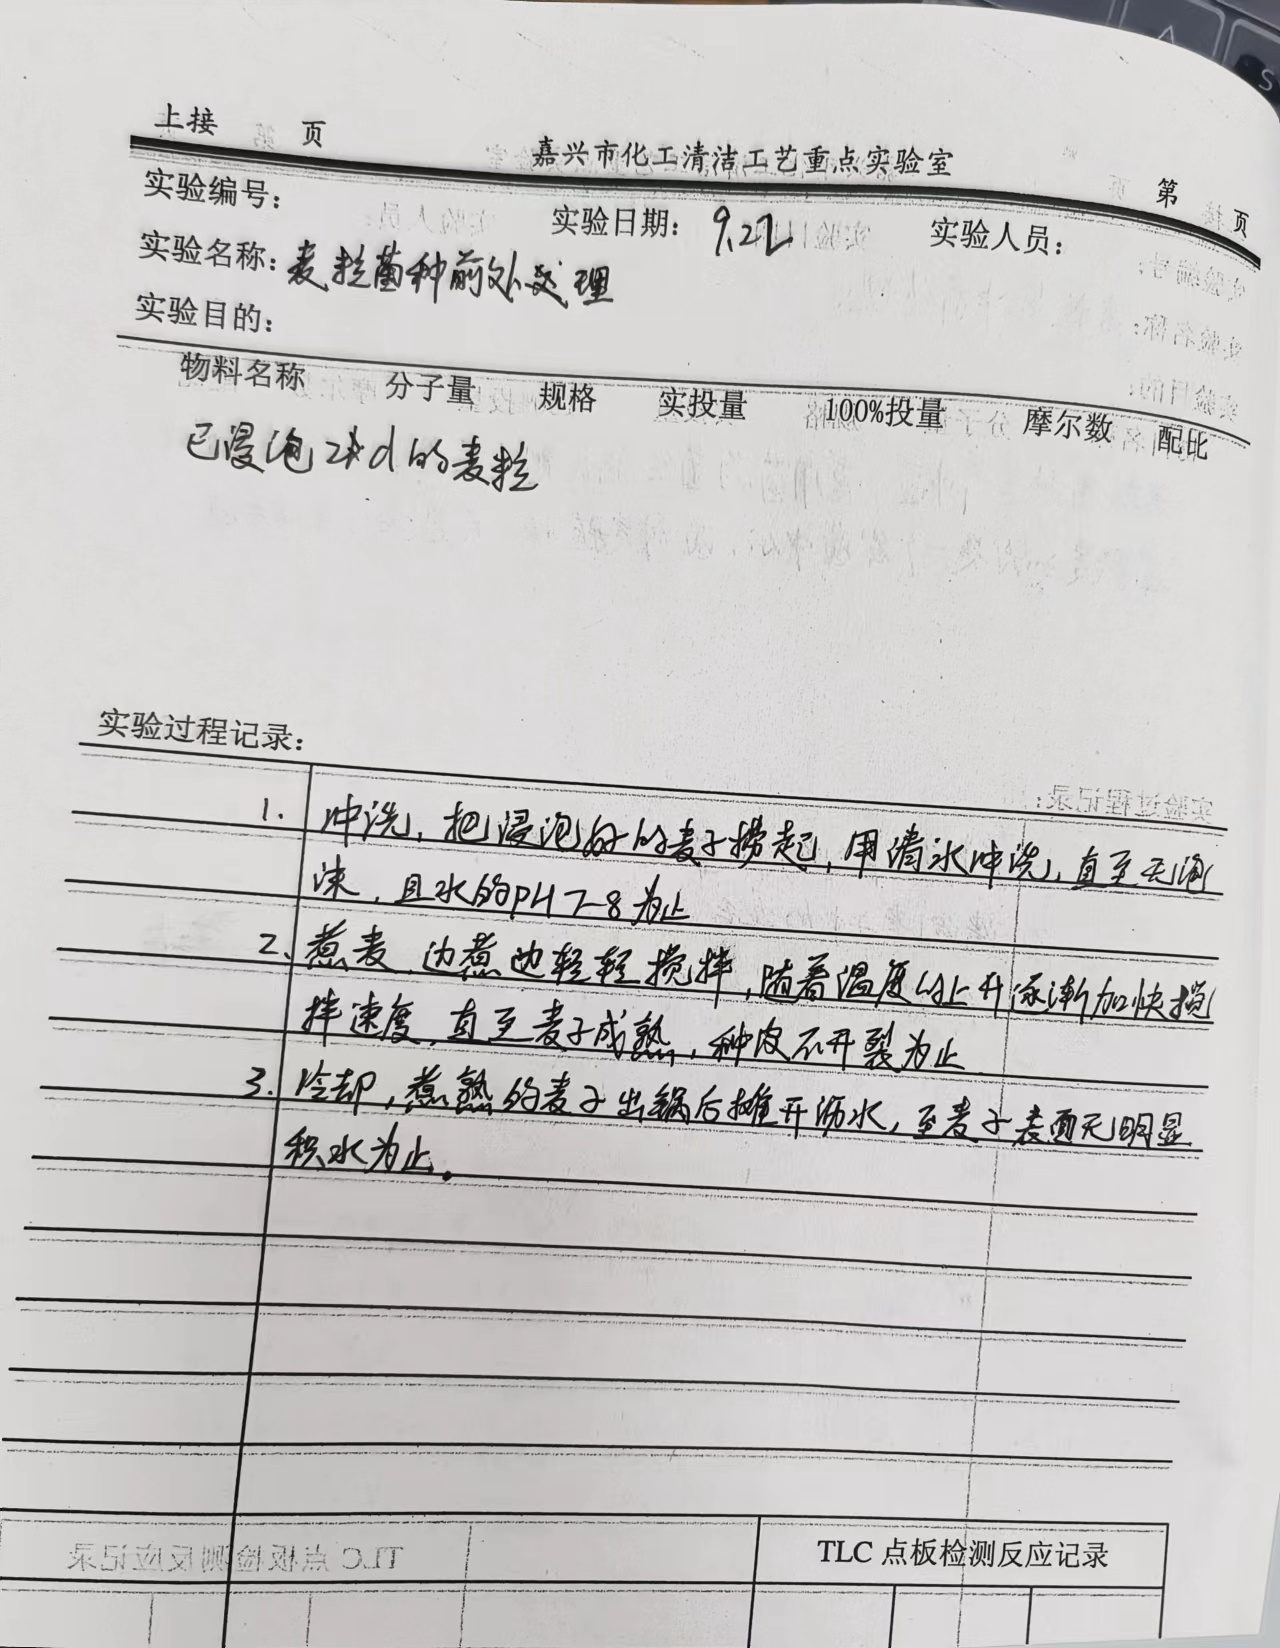 上接 页
嘉兴市化工清洁工艺重点实验室
第 页
实验编号：
实验日期： 9.22
实验人员：
实验名称：麦粒菌种前处理
实验目的：
物料名称 分子量 规格 实投量 100%投量 摩尔数 配比
已浸泡2d的麦粒
实验过程记录：
1. 冲洗，把浸泡好的麦子捞起，用清水冲洗，直至无泡
沫，且水的PH 7-8为止
2. 煮麦，边煮边轻轻搅拌，随着温度的上升逐渐加快搅
拌速度，直至麦子成熟，种皮不开裂为止
3. 冷却，煮熟的麦子出锅后摊开沥水，至麦子表面无明显
积水为止。
TLC 点板检测反应记录